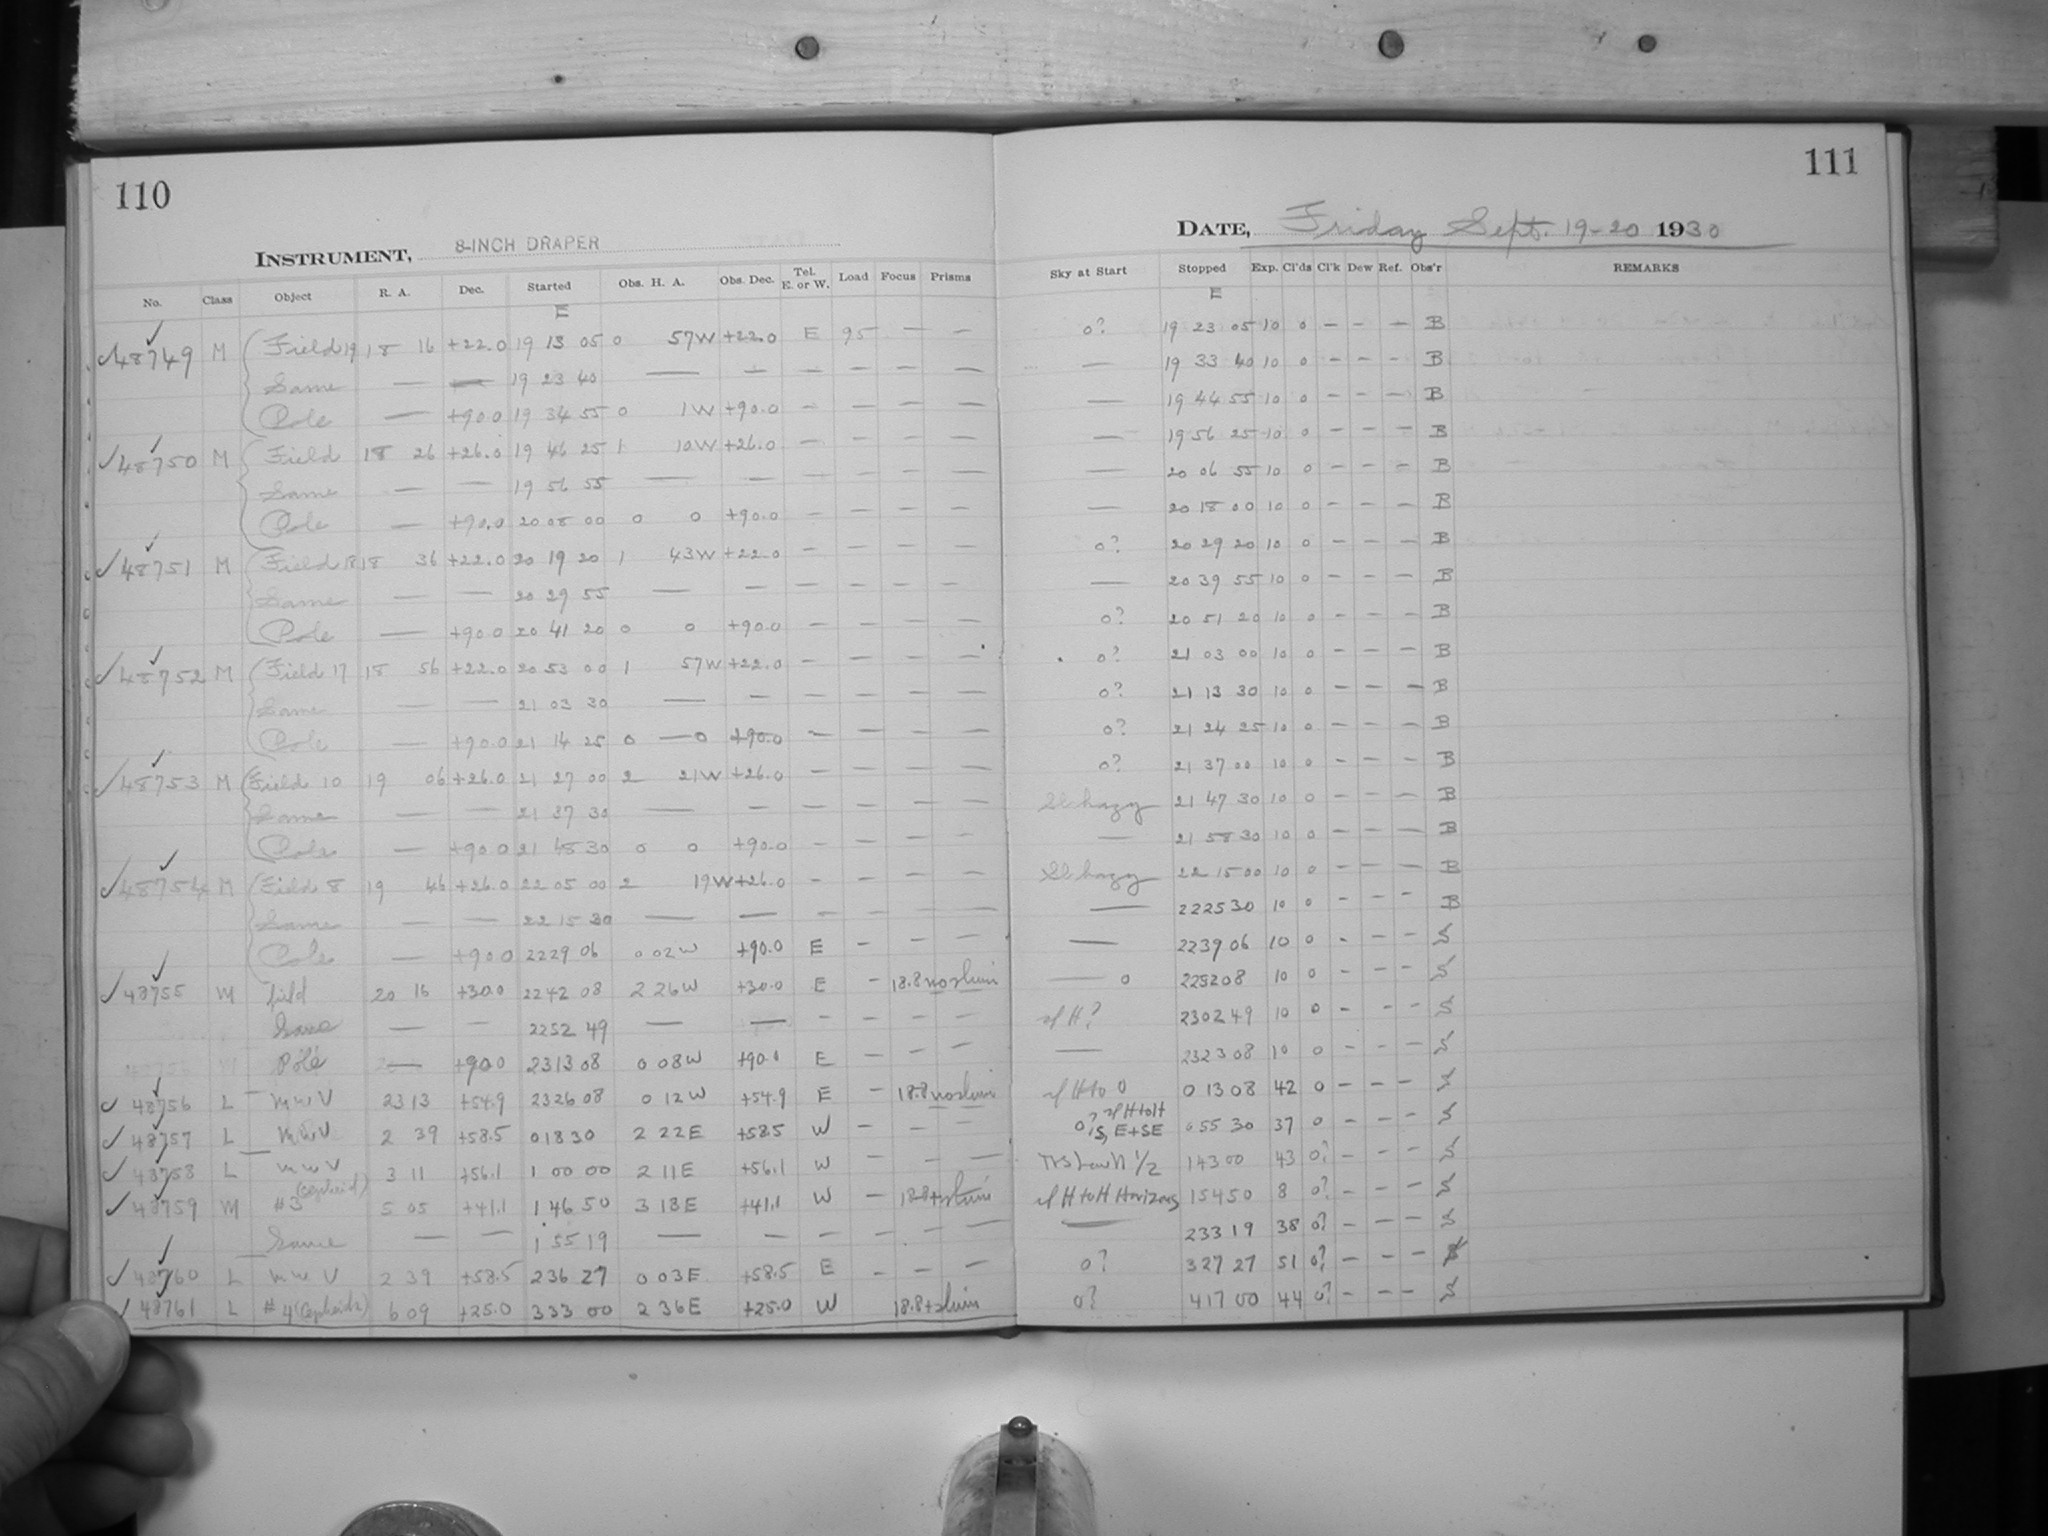 110
INSTRUMENT, 8-INCH DRAPER
No. Class Object R. A. Dec. Started Obs. H. A. Obs. Dec. Tel. E. or W. Load Focus Prisms
E
✓48749 M Field 19 18 16 +22.0 19 13 05 0 57W +22.0 E 95 — —
Same — — 19 23 40 — — — — — —
Pole — +90.0 19 34 55 0 1W +90.0 — — — —
✓48750 M Field 18 26 +26.0 19 46 25 1 10W +26.0 — — — —
Same — — 19 56 55 — — — — — —
Pole — +90.0 20 08 00 0 0 +90.0 — — — —
✓48751 M Field 18 18 36 +22.0 20 19 20 1 43W +22.0 — — — —
Same — — 20 29 55 — — — — — —
Pole — +90.0 20 41 20 0 0 +90.0 — — — —
✓48752 M Field 17 18 56 +22.0 20 53 00 1 57W +22.0 — — — —
Same — — 21 03 30 — — — — — —
Pole — +90.0 21 14 25 0 — 0 +90.0 — — — —
✓48753 M Field 10 19 06 +26.0 21 27 00 2 21W +26.0 — — — —
Same — — 21 37 30 — — — — — —
Pole — +90.0 21 48 30 0 0 +90.0 — — — —
✓48754 M Field 8 19 46 +26.0 22 05 00 2 19W +26.0 — — — —
Same — — 22 15 30 — — — — — —
Pole — +90.0 22 29 06 0 02W +90.0 E — — —
✓48755 M field 20 16 +30.0 22 42 08 2 26W +30.0 E — 18.8 no shim
Same — — 22 52 49 — — — — — —
Pole — +90.0 23 13 08 0 08W +90.0 E — — —
✓48756 L MWV 23 13 +54.9 23 26 08 0 12W +54.9 E — 18.8 no shim
✓48757 L MWV 2 39 +58.5 0 18 30 2 22E +58.5 W — — —
✓48758 L MWV 3 11 +56.1 1 00 00 2 11E +56.1 W — — —
✓48759 M #3 (Cepheid) 5 05 +41.1 1 46 50 3 18E +41.1 W — 18.8 + shim
Same — — 1 55 19 — — — — — —
✓48760 L MWV 2 39 +58.5 2 36 27 0 03E +58.5 E — — —
✓48761 L #4 (Cepheids) 6 09 +25.0 3 33 00 2 36E +25.0 W 18.8 + shim
111
DATE, Friday Sept. 19-20 1930
Sky at Start Stopped Exp. Cl'ds Cl'k Dew Ref. Obs'r REMARKS
E
0? 19 23 05 10 0 — — — B
— 19 33 40 10 0 — — — B
— 19 44 55 10 0 — — — B
— 19 56 25 10 0 — — — B
— 20 06 55 10 0 — — — B
— 20 18 00 10 0 — — — B
0? 20 29 20 10 0 — — — B
— 20 39 55 10 0 — — — B
0? 20 51 20 10 0 — — — B
0? 21 03 00 10 0 — — — B
0? 21 13 30 10 0 — — — B
0? 21 24 25 10 0 — — — B
0? 21 37 00 10 0 — — — B
Sl hazy 21 47 30 10 0 — — — B
— 21 58 30 10 0 — — — B
Sl hazy 22 15 00 10 0 — — — B
— 22 25 30 10 0 — — — B
— 22 39 06 10 0 — — — S
— 0 22 52 08 10 0 — — — S
sl H? 23 02 49 10 0 — — — S
— 23 23 08 10 0 — — — S
sl H to 0 0 13 08 42 0 — — — S
0? sl H to H S, E+SE 0 55 30 37 0 — — — S
1/2 1 43 00 43 0? — — — S
sl H to H Horizons 1 54 50 8 0? — — — S
— 2 33 19 38 0? — — — S
0? 3 27 27 51 0? — — —
0? 4 17 00 44 0? — — — S